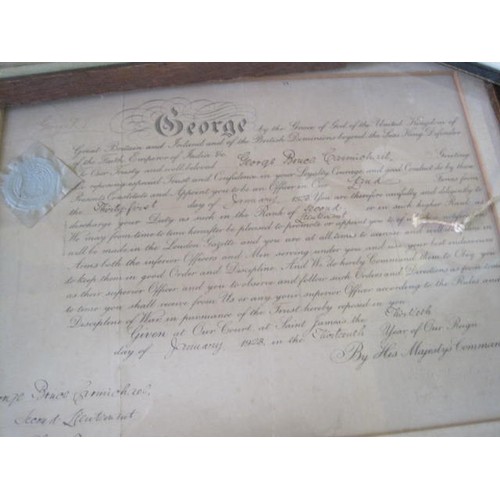 George by the Grace of God of the United Kingdom of
Great Britain and Ireland and of the British Dominions beyond the Seas King Defender
of the Faith, Emperor of India &c
To Our Trusty and well beloved George Bruce Greeting
We reposing especial Trust and Confidence in your Loyalty Courage and good Conduct do by these
Presents Constitute and Appoint you to be an Officer in Our Land Forces from
the day of January You are therefore carefully and diligently to
discharge your Duty as such in the Rank of Second Lieutenant or in such higher Rank as
We may from time to time hereafter be pleased to promote or appoint you to of which
will be made in the London Gazette and you are at all times to
Arms both the inferior Officers and Men serving under you and use your best endeavours
to keep them in good Order and Discipline. And We do hereby Command them to Obey you
as their superior Officer and you to observe and follow such Orders and Directions as from time
to time you shall receive from Us or any your superior Officer according to the Rules and
Discipline of War in pursuance of the Trust hereby reposed in you
Given at Our Court at Saint James's the
day of January in the Year of Our Reign
By His Majesty's Command
Bruce
Second Lieutenant